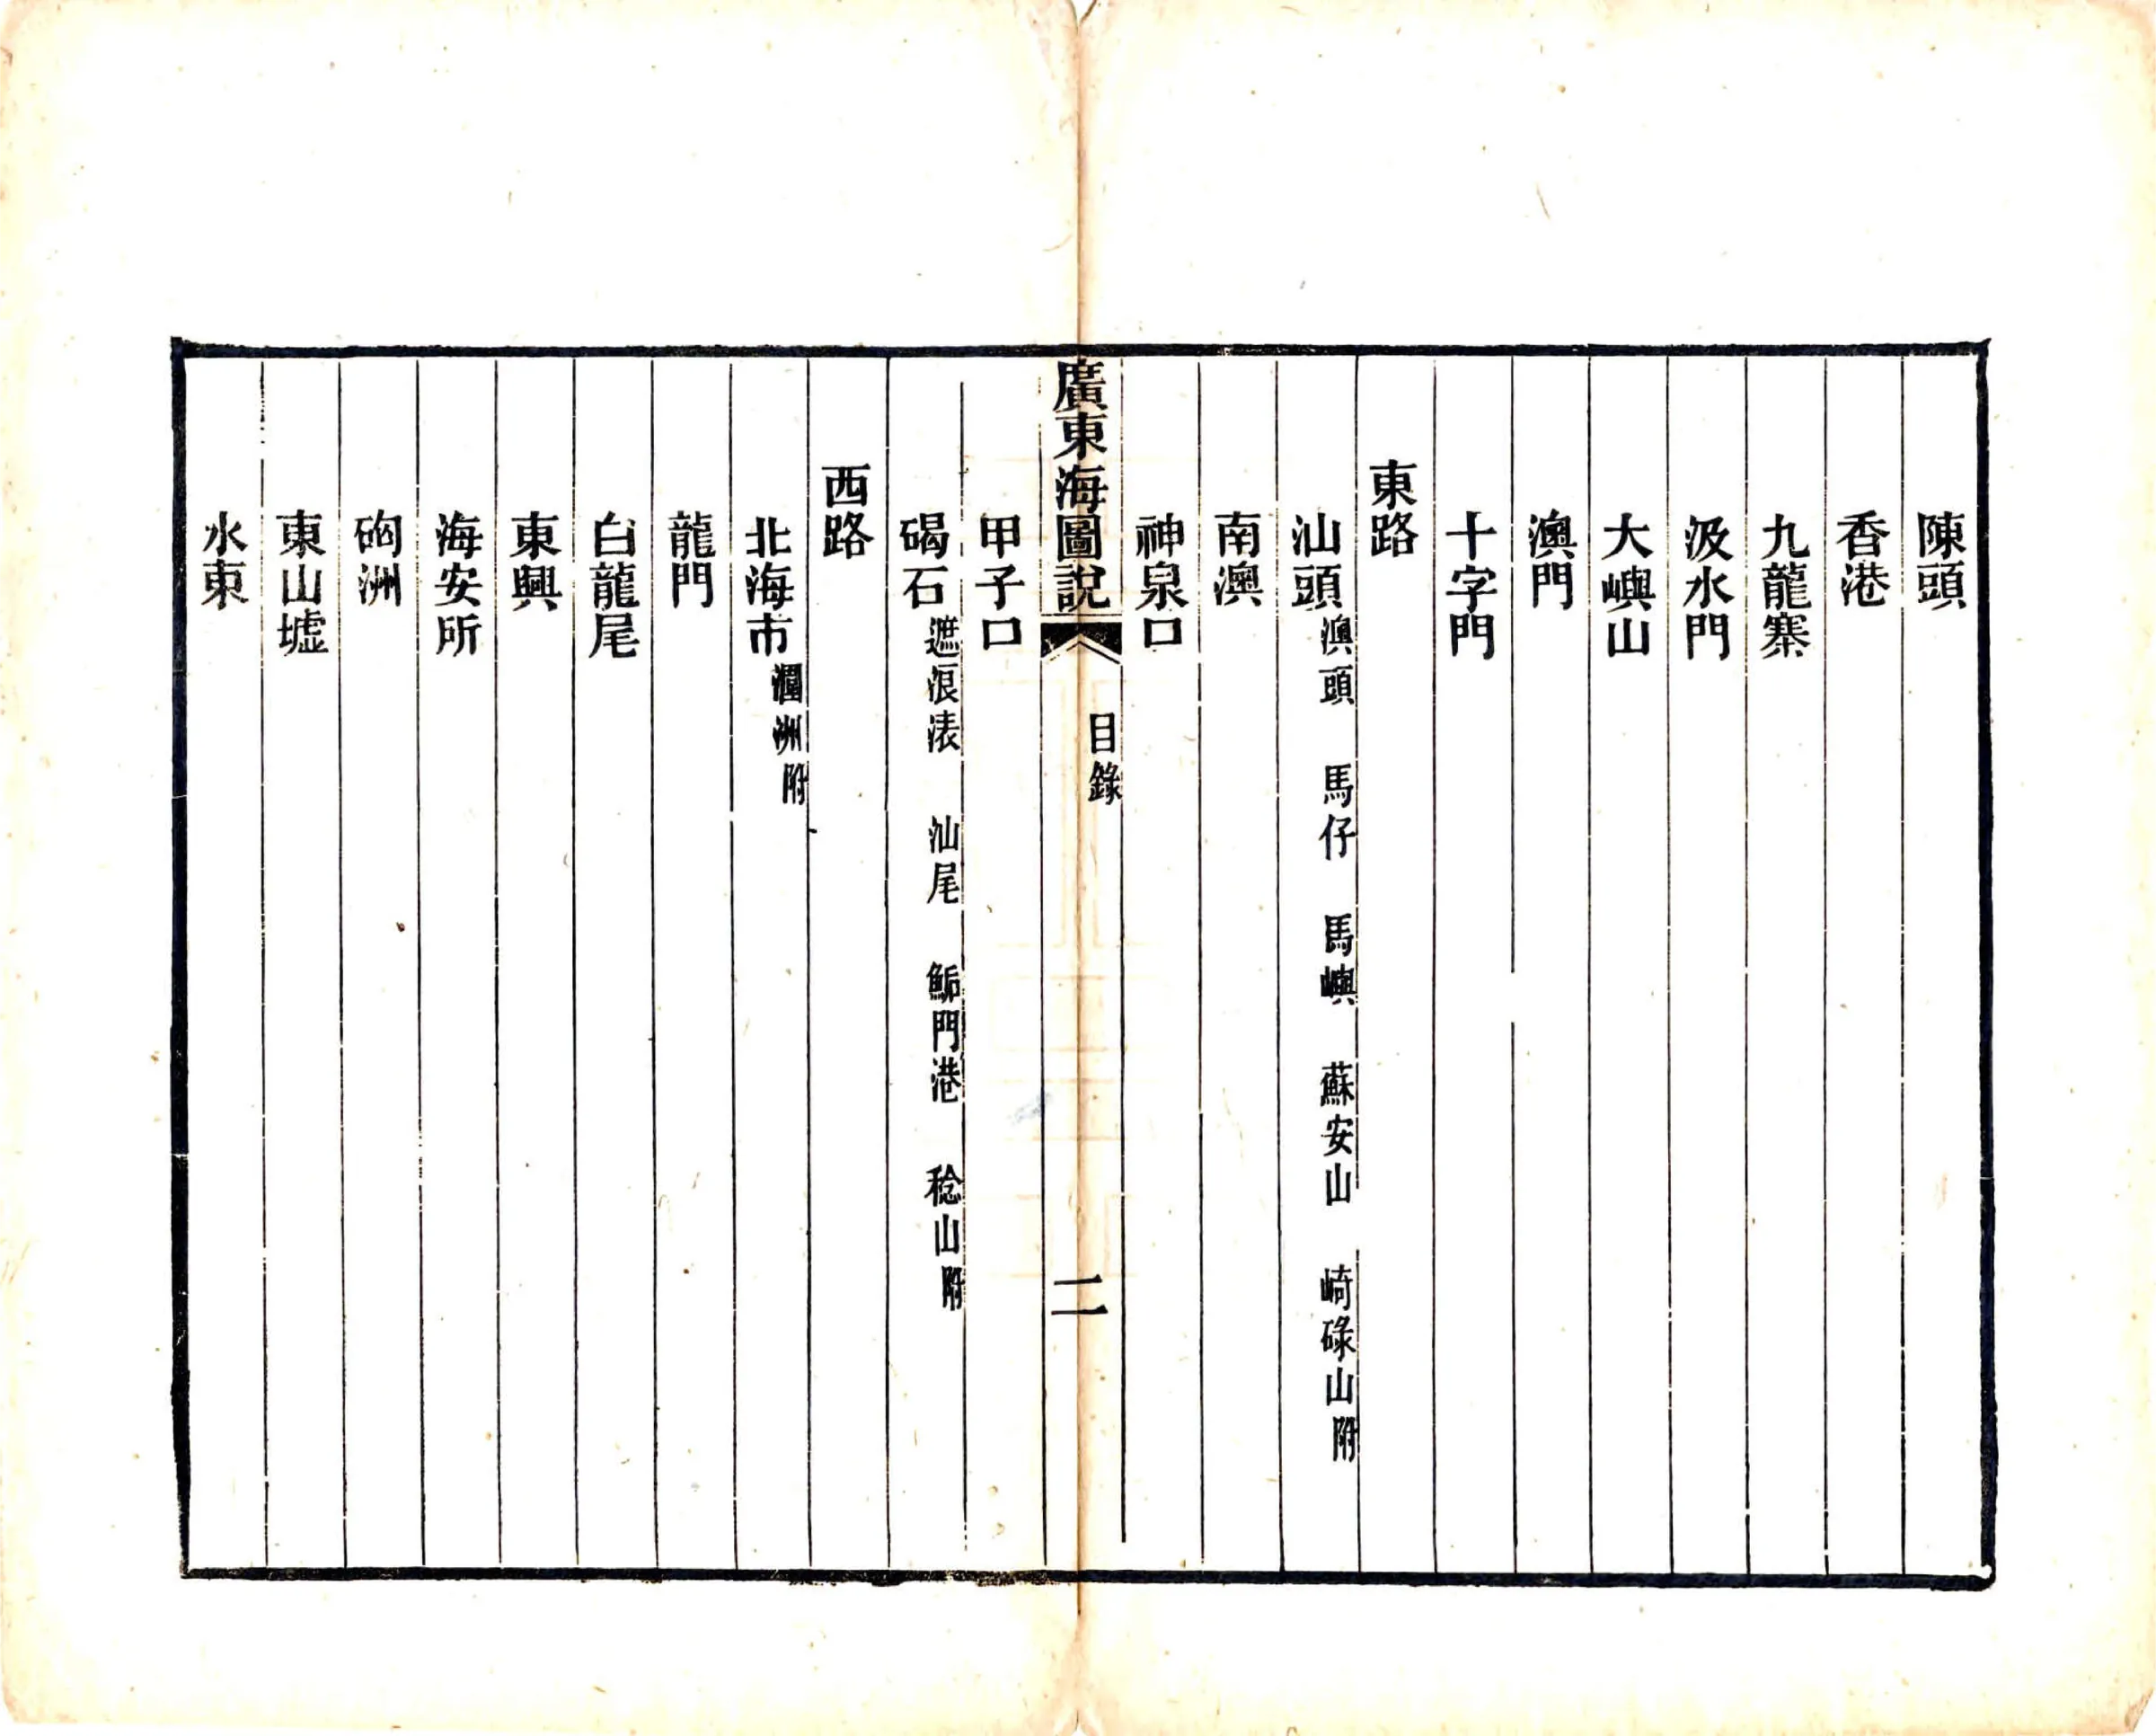 陳頭
香港
九龍寨
汲水門
大嶼山
澳門
十字門
東路
汕頭澳頭 馬仔 馬嶼 蘇安山 崎碌山附
南澳
神泉口
廣東海圖說 目錄 二
甲子口
碣石遮浪表 汕尾 鮜門港 稔山附
西路
北海市潿洲附
龍門
白龍尾
東興
海安所
硇洲
東山墟
水東